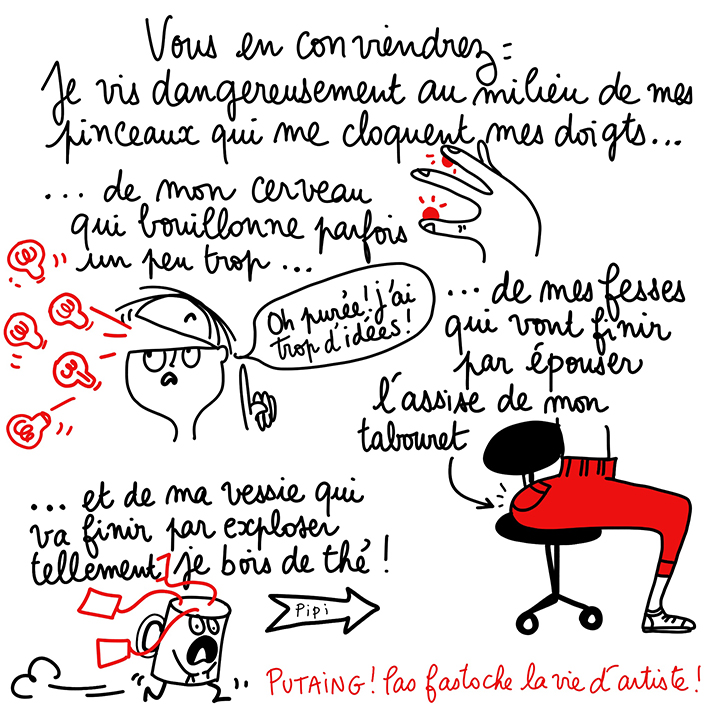 Vous en conviendrez :
Je vis dangereusement au milieu de mes
pinceaux qui me cloquent mes doigts...
... de mon cerveau
qui bouillonne parfois
un peu trop ...
Oh purée ! j'ai
trop d'idées !
... de mes fesses
qui vont finir
par épouser
l'assise de mon
tabouret
... et de ma vessie qui
va finir par exploser
tellement je bois de thé !
Pipi
PUTAING ! Pas fastoche la vie d'artiste !